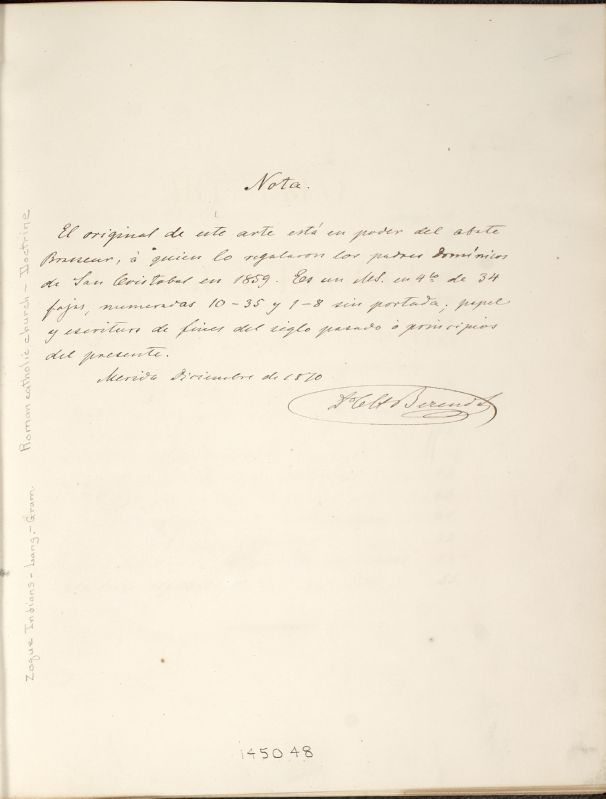 Nota.
El original de este arte está en poder del abate
Brasseur, à quien lo regalaron los padres Domínicos
de San Cristobal en 1859. Es un MS. en 4to de 34
fojas, numeradas 10-35 y 1-8 sin portada; papel
y escritura de fines del siglo pasado ò principios
del presente.
Merida Diciembre de 1870
Dr C H Berendt
Roman catholic church - Doctrine
Zoque Indians - Lang. - Gram.
145048